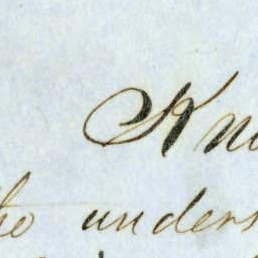 Kn
ho unders